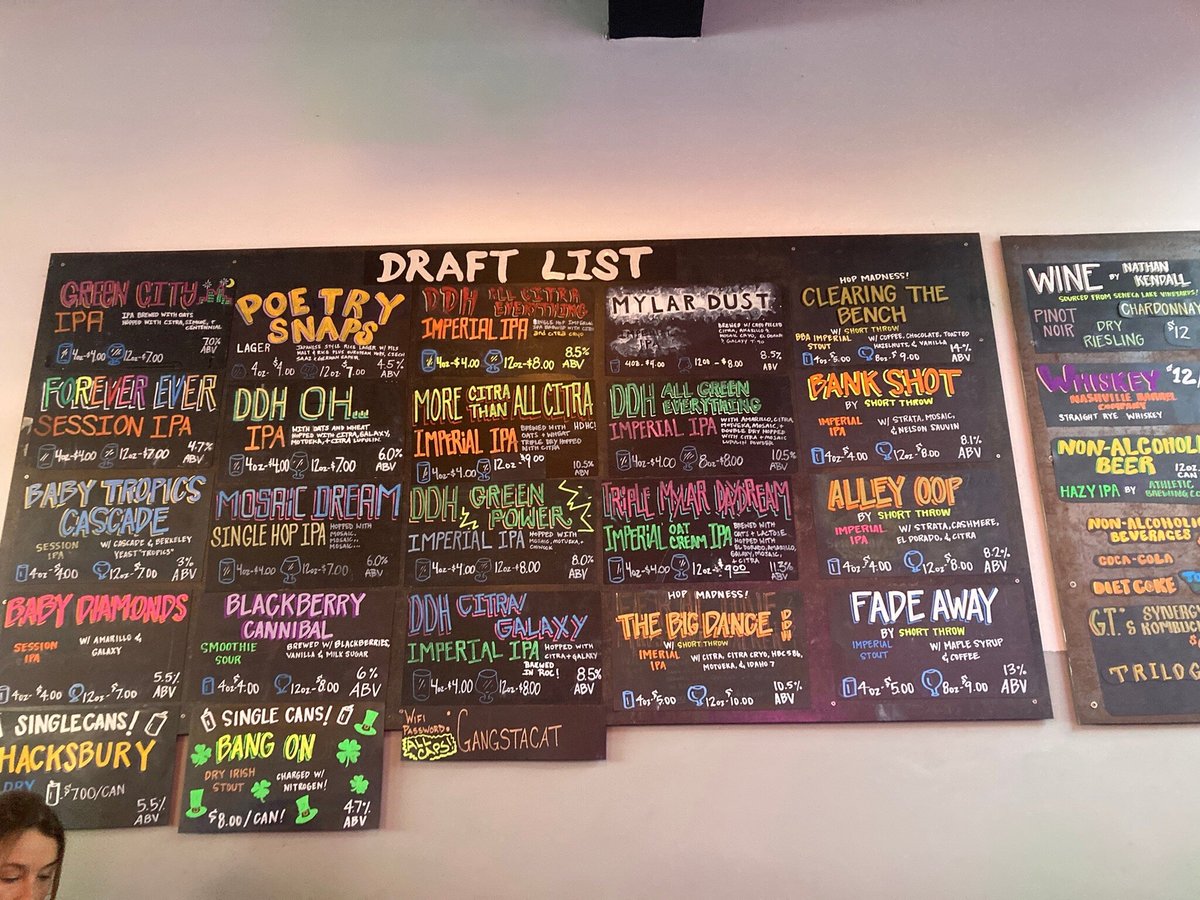 DRAFT LIST
GREEN CITY
IPA
IPA BREWED WITH OATS
HOPPED WITH CITRA, SIMCOE, &
CENTENNIAL
4oz-$4.00 12oz-$7.00
7.0%
ABV
POETRY
SNAPS
LAGER
JAPANESE STYLE RICE LAGER W/ PILS
MALT & RICE PLUS EUROPEAN HOPS, CZECH
SAAZ & GERMAN
4oz $4.00 12oz $7.00
4.5%
ABV
DDH ALL CITRA
EVERYTHING
IMPERIAL IPA
SINGLE HOP IMPERIAL
IPA
AND CITRA CRYO
4oz-$4.00 12oz-$8.00
8.5%
ABV
MYLAR DUST
4oz. $4.00 12oz - $8.00
8.5%
ABV
HOP MADNESS!
CLEARING THE
BENCH
BY SHORT THROW
BBA IMPERIAL
STOUT
W/ COFFEE, CHOCOLATE, TOASTED
HAZELNUTS, & VANILLA
4oz-$5.00 8oz-$9.00
14%
ABV
FOREVER EVER
SESSION IPA
4oz-$4.00 12oz-$7.00
4.7%
ABV
DDH OH...
IPA
WITH OATS AND WHEAT
HOPPED WITH CITRA, GALAXY,
MOTUEKA, & CITRA LUPULIN
4oz-$4.00 12oz-$7.00
6.0%
ABV
MORE CITRA THAN ALL CITRA
IMPERIAL IPA
BREWED WITH HDHC!
OATS & WHEAT
TRIPLE DRY HOPPED
WITH CITRA
4oz-$4.00 12oz $9.00
10.5%
ABV
DDH ALL GREEN
EVERYTHING
IMPERIAL IPA
WITH AMARILLO, CITRA,
MOTUEKA, MOSAIC, &
DOUBLE DRY HOPPED
WITH CITRA & MOSAIC
LUPULIN POWDER
4oz-$4.00 8oz-$8.00
10.5%
ABV
BANK SHOT
BY SHORT THROW
IMPERIAL
IPA
W/ STRATA, MOSAIC,
& NELSON SAUVIN
4oz-$4.00 12oz-$8.00
8.1%
ABV
BABY TROPICS
CASCADE
SESSION
IPA
W/ CASCADE & BERKELEY
YEAST "TROPICS"
4oz-$4.00 12oz-$7.00
3%
ABV
MOSAIC DREAM
SINGLE HOP IPA
HOPPED WITH
MOSAIC,
MOSAIC,
MOSAIC...
4oz-$4.00 12oz-$7.00
6.0%
ABV
DDH GREEN
POWER
IMPERIAL IPA
HOPPED WITH
MOSAIC, MOTUEKA &
CHINOOK
4oz-$4.00 12oz-$8.00
8.0%
ABV
TRIPLE MYLAR DAYDREAM
IMPERIAL OAT CREAM IPA
BREWED WITH
OATS & LACTOSE.
HOPPED WITH
EL DORADO, AMARILLO,
GALAXY, MOSAIC,
& CITRA
4oz-$4.00 12oz-$9.00
11.3%
ABV
ALLEY OOP
BY SHORT THROW
IMPERIAL
IPA
W/ STRATA, CASHMERE,
EL DORADO, & CITRA
4oz-$4.00 12oz-$8.00
8.2%
ABV
BABY DIAMONDS
SESSION
IPA
W/ AMARILLO &
GALAXY
4oz-$4.00 12oz-$7.00
5.5%
ABV
BLACKBERRY
CANNIBAL
SMOOTHIE
SOUR
BREWED W/ BLACKBERRIES,
VANILLA & MILK SUGAR
4oz-$4.00 12oz-$8.00
6%
ABV
DDH CITRA/
GALAXY
IMPERIAL IPA
HOPPED WITH
CITRA + GALAXY
BREWED
IN ROC!
4oz-$4.00 12oz-$8.00
8.5%
ABV
HOP MADNESS!
THE BIG DANCE
DDH
W/ SHORT THROW
IMERIAL
IPA
W/ CITRA, CITRA CRYO, HBC 586,
MOTUEKA, & IDAHO 7
4oz-$5.00 12oz-$10.00
10.5%
ABV
FADE AWAY
BY SHORT THROW
IMPERIAL
STOUT
W/ MAPLE SYRUP
& COFFEE
4oz-$5.00 8oz-$9.00
13%
ABV
SINGLE CANS!
HACKSBURY
DRY
$7.00/CAN
5.5%
ABV
SINGLE CANS!
BANG ON
DRY IRISH
STOUT
CHARGED W/
NITROGEN!
$8.00/CAN!
4.7%
ABV
"WIFI
PASSWORD"
ALL
CAPS!
GANGSTACAT
WINE BY NATHAN
KENDALL
SOURCED FROM SENECA LAKE VINEYARDS!
PINOT
NOIR
CHARDONNA
DRY
RIESLING
$12
WHISKEY $12/
NASHVILLE BARREL
COMPANY
STRAIGHT RYE WHISKEY
NON-ALCOHOLI
BEER
12oz.
CAN
HAZY IPA BY ATHLETIC
BREWING C
NON-ALCOHOLI
BEVERAGES
COCA-COLA
DIET COKE
G.T.'S SYNERG
KOMBUC
TRILOG